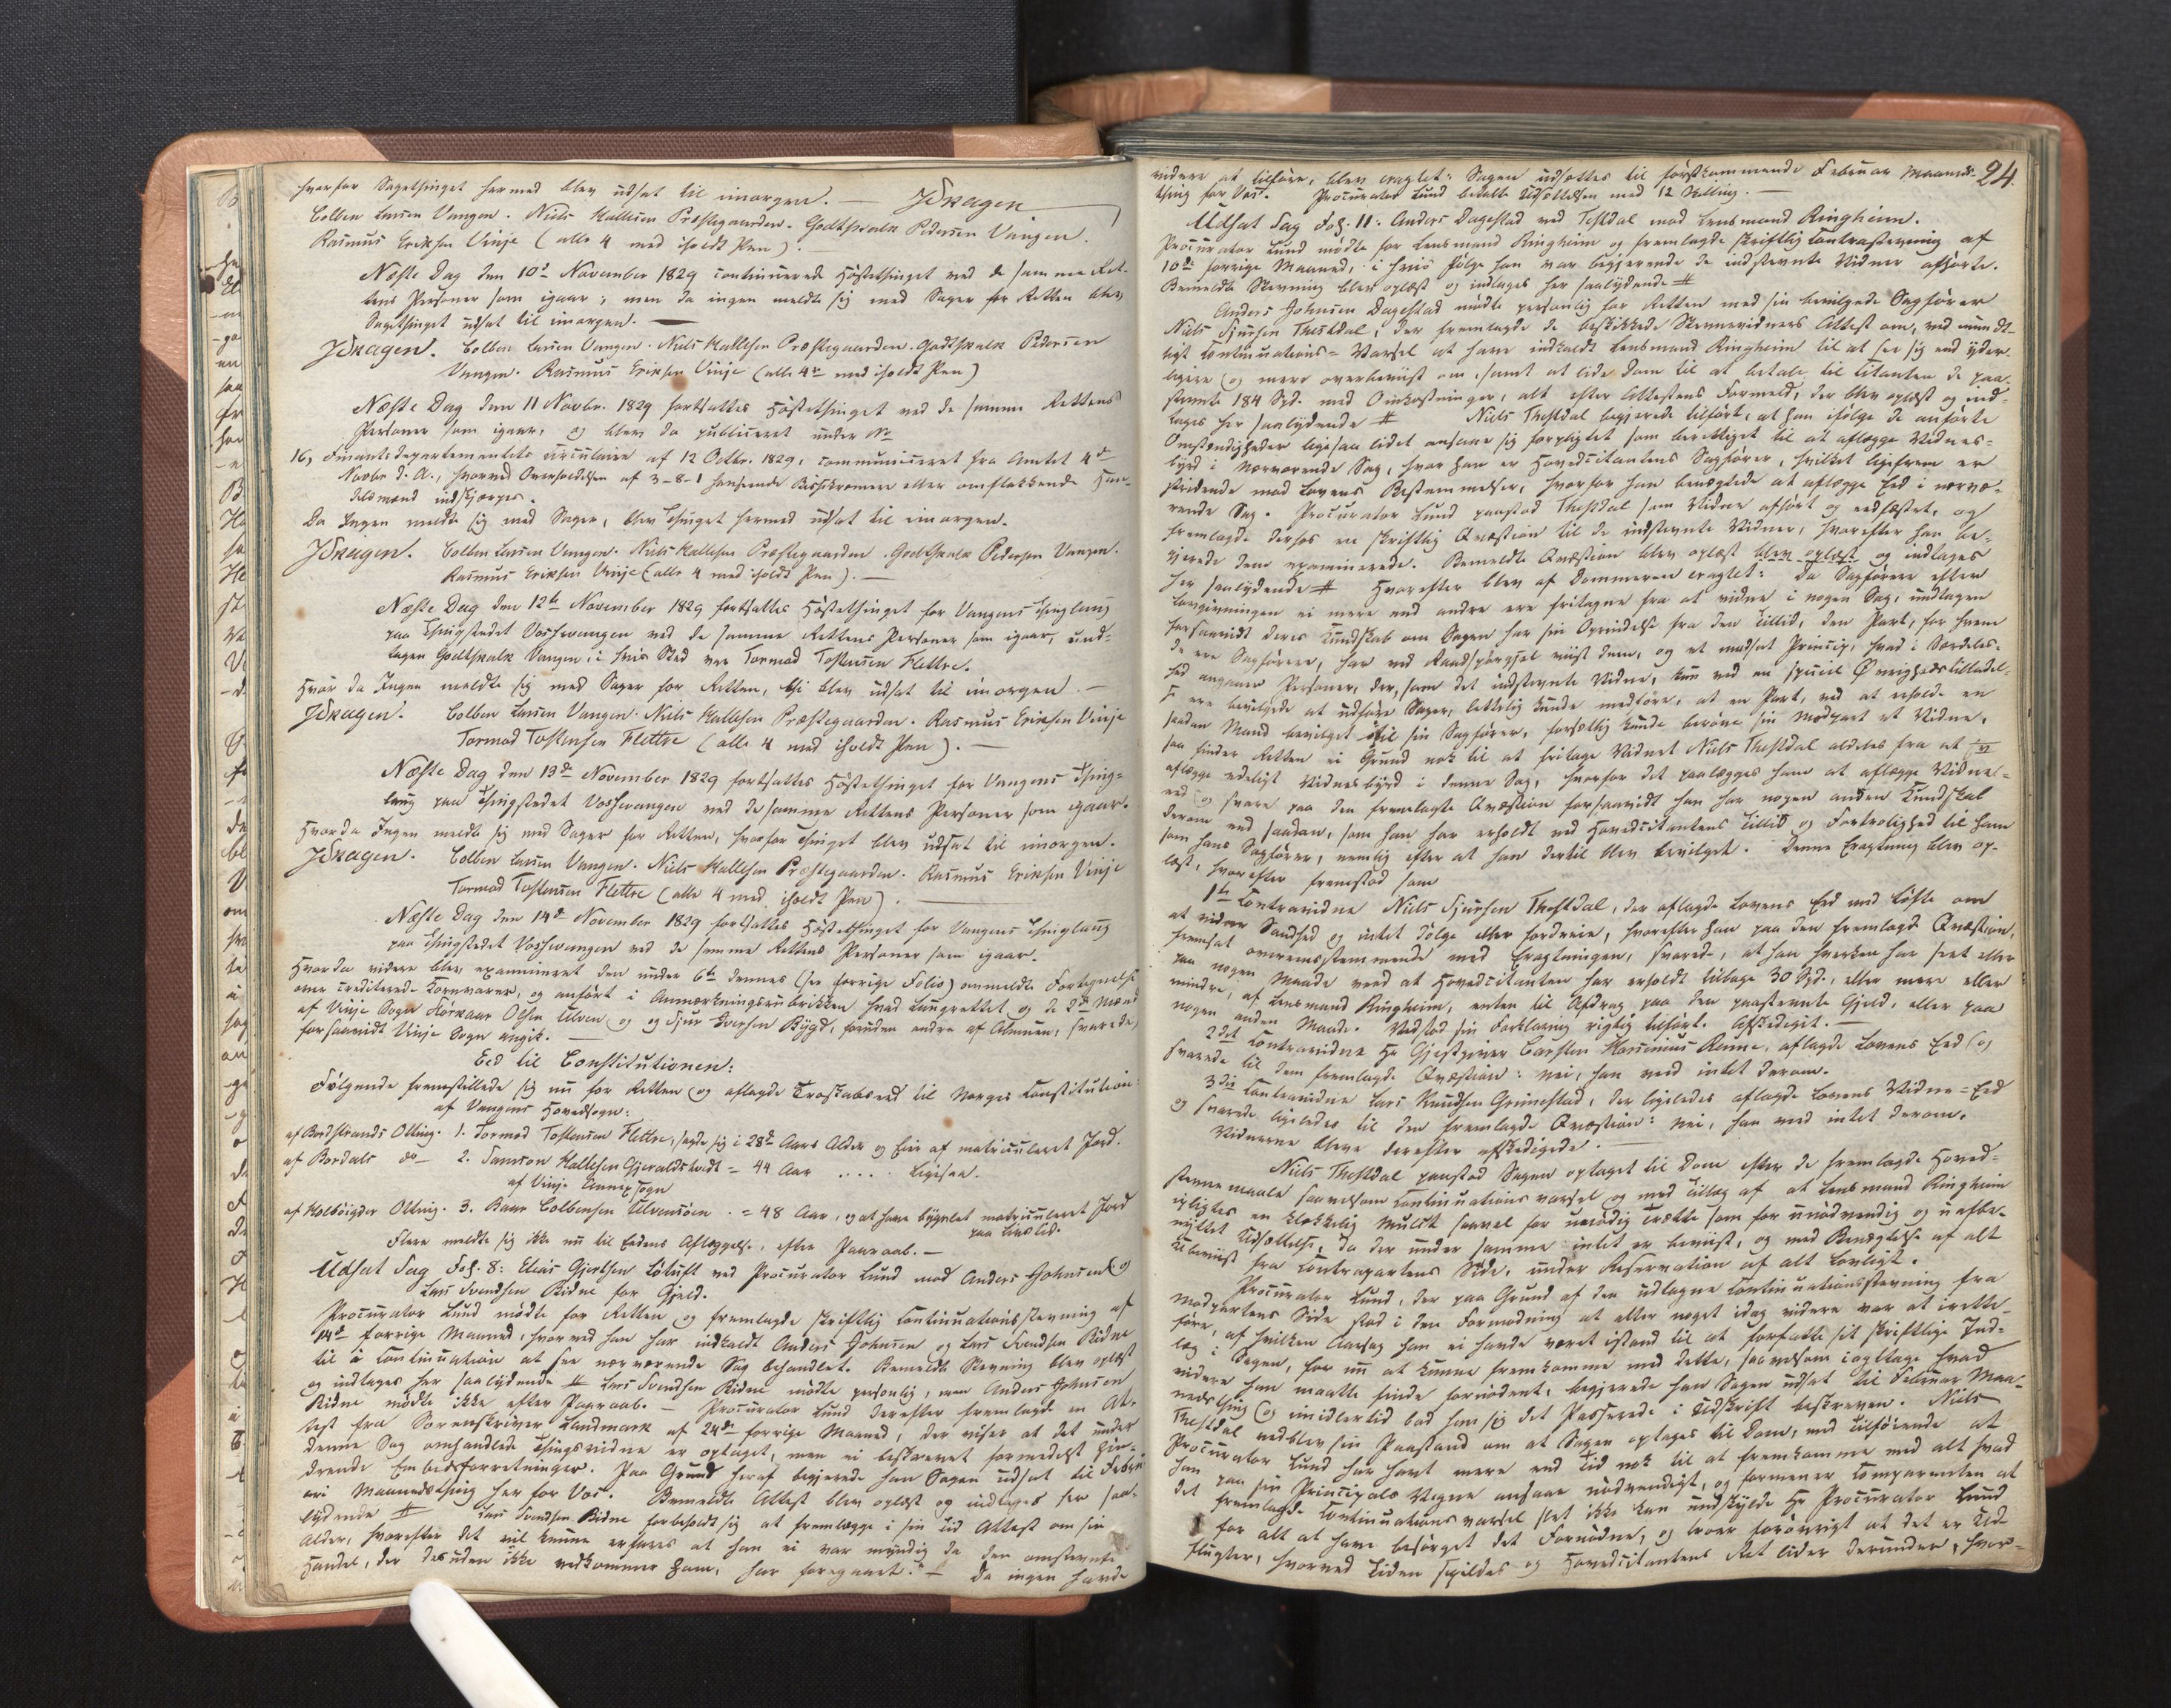 hvorfor Sagethinget hermed blev udsat til imorgen. — JKragen
Colben Larsen Vangen. Niels Kallesen Præstegaarden. Godtskalk Pedersen Vangen.
Rasmus Eriksen Vinje (alle 4 med iholdt Pen).
Næste Dag den 10de November 1829 continuerede Høstethinget ved de samme Ret-
tens Personer som igaar; men da ingen meldte sig med Sager for Retten blev
Sagethinget udsat til imorgen. —
JKragen. Colben Larsen Vangen. Niels Kallesen Præstegaarden. Godtskalk Pedersen
Vangen. Rasmus Eriksen Vinje (alle 4re med iholdt Pen)
Næste Dag den 11 Novbr. 1829 fortsattes Høstethinget ved de samme Rettens
Personer som igaar, og blev da publiceret under No
16, Finantsdepartementets Circulaire af 12 Octbr. 1829, communiceret fra Amtet 4de
Novbr d. A., hvorved Overholdelsen af 3-8-1 henseende Bissekræmere eller omflakkende Han-
delsmænd indskjærpes.
Da Ingen meldte sig med Sager, blev Thinget hermed udsat til imorgen.
JKragen. Colben Larsen Vangen. Niels Kallesen Præstegaarden. Godtskalk Pedersen Vangen.
Rasmus Eriksen Vinje (alle 4 med iholdt Pen). —
Næste Dag den 12te November 1829 fortsattes Høstethinget for Vangens Thinglaug
paa Thingstedet Vossevangen ved de samme Rettens Personer som igaar, und-
tagen Godtskalk Vangen, i hvis Sted var Tormod Tostensen Flettre.
Hvor da Ingen meldte sig med Sager for Retten, thi blev udsat til imorgen. —
JKragen. Colben Larsen Vangen. Niels Kallesen Præstegaarden. Rasmus Eriksen Vinje
Tormod Tostensen Flettre (alle 4 med iholdt Pen). —
Næste Dag den 13de November 1829 fortsattes Høstethinget for Vangens Thing-
laug paa Thingstedet Vossevangen ved de samme Rettens Personer som igaar.
Hvor da Ingen meldte sig med Sager for Retten, hvorfor Thinget blev udsat til imorgen.
JKragen. Colben Larsen Vangen. Niels Kallesen Præstegaarden. Rasmus Eriksen Vinje
Tormod Tostensen Flettre (alle 4 med iholdt Pen). —
Næste Dag den 14de November 1829 fortsattes Høstethinget for Vangens Thinglaug
paa Thingstedet Vossevangen ved de samme Rettens Personer som igaar.
Hvor da videre blev examineret den under 6te dennes (see forrige Folio) anmeldte Fortegnelse
over crediterede Kornvarer, og anført i Anmærkningsrubrikken hvad Laugrettet og de 2de Mænd
af Vinje Sogn Olsen Ulven og Sjur Iversen Bygd, foruden andre af Almuen, svarede,
forsaavidt Vinje Sogn angik. —
Eed til Constitutionen:
Følgende fremstillede sig nu for Retten og aflagde Troskabseed til Norges Constitution:
af Vangens Hovedsogn:
af Bordstrands Otting. 1. Tormod Tostensen Flettre, sagde sig i 28de Aars Alder og Eier af matriculeret Jord.
af Bordals do — 2. Samson Kallesen Gjeraldstvedt = 44 Aar .... Ligesaa.
af Vinje Annexsogn
af Holbøigder Otting. 3. Colbensen = 48 Aar, og at have bygslet matriculeret Jord
paa Livstid.
Flere meldte sig ikke nu til Eedens Aflæggelse, efter Paaraab. —
Udsat Sag Fol. 8: Elias Gjertsen Løtuft ved Procurator Lund mod Anders Johnsen og
Lars Svendsen Ridne for Gjeld.
Procurator Lund mødte for Retten og fremlagde skriftlig Continuationsstevning af
14de forrige Maaned, hvorved han har indkaldt Anders Johnsen og Lars Svendsen Ridne
til i Continuation at see nærværende Sag behandlet. Bemeldte Stevning blev oplæst
og indtages her saalydende # Lars Svendsen Ridne mødte personlig, men Anders Johnsen
Ridne mødte ikke efter Paaraab. — Procurator Lund derefter fremlagde en At-
test fra Sorenskriver Landmark af 24de forrige Maaned, der viser at det under
denne Sag omhandlede Thingsvidne er optaget, men ei beskrevet formedelst hin-
drende Embedsforretninger. Paa Grund heraf begjerede han Sagen udsat til Febru-
ari Maanedsthing her for Vos. Bemeldte Attest blev oplæst og indtages her saa-
lydende # Lars Svendsen Ridne forbeholdt sig at fremlægge i sin Tid Attest om sin
Alder, hvorefter det vil kunne erfares at han ei var myndig da den omstevnte
Handel, der desuden ikke vedkommer ham, har foregaaet. — Da ingen havde
24.
videre at tilføre, blev eragtet: Sagen udsættes til førstkommende Februar Maaneds-
thing for Vos. Procurator Lund betalte Udsættelsen med 12 Skilling. —
Udsat Sag Fol. 11: Anders Dagestad ved Testdal mod Lensmand Ringheim.
Procurator Lund mødte for Lensmand Ringheim og fremlagde skriftlig Contrastevning af
10de forrige Maaned, i hvis Følge han var begjerende de indstevnte Vidner afhørte.
Bemeldte Stevning blev oplæst og indtages her saalydende #
Anders Johnsen Dagestad mødte personlig for Retten med sin bevilgede Sagfører
Niels Sjursen Thestdal, der fremlagde de beskikkede Stevnevidners Attest om, ved mundt-
ligt Continuations-Varsel at have indkaldt Lensmand Ringheim til at see sig end yder-
ligere og mere overbeviist om, samt at lide Dom til at betale til Citanten de paa-
stevnte 184 Spd. med Omkostninger, alt efter Attestens Formeld, der blev oplæst og ind-
tages her saalydende # Niels Thestdal begjerede tilført, at han ifølge de anførte
Omstændigheder ligesaa lidet ansaae sig forpligtet som berettiget til at aflægge Vidnes-
byrd i nærværende Sag, hvor han er Hovedcitantens Sagfører, hvilket ligefrem er
stridende mod Lovens Bestemmelser, hvorfor han benægtede at aflægge Eed i nærvæ-
rende Sag. Procurator Lund paastod Thestdal som Vidne afhørt og eedfæstet, og
fremlagde derhos en skriftlig Qvæstion til de indstevnte Vidner, hvorefter han be-
gjerede dem examinerede. Bemeldte Qvæstion blev oplæst blev oplæst og indtages
her saalydende # Hvorefter blev af Dommeren eragtet: Da Sagførere efter
Lovgivningen ei mere end andre ere fritagne fra at vidne i nogen Sag, undtagen
forsaavidt deres Kundskab om Sagen har sin Oprindelse fra den Tillid, den Part, for hvem
de ere Sagførere, har ved Raadspørgsel viist dem, og et modsat Princip, hvad i Særdeles-
hed angaaer Personer, der, som det indstevnte Vidne, kun ved en speciel Øvrighedstilladel-
se ere bevilgede at udføre Sager, lettelig kunde medføre, at en Part, ved at erholde en
saadan Mand bevilget til sin Sagfører, forsætlig kunde berøve sin Modpart et Vidne,
saa finder Retten ei Grund nok til at fritage Vidnet Niels Thestdal aldeles fra at
aflægge edeligt Vidnesbyrd i denne Sag, hvorfor det paalægges ham at aflægge Vidnes-
eed og svare paa den fremlagte Qvæstion forsaavidt han har nogen anden Kundskab
derom end saadan, som han har erholdt ved Hovedcitantens Tillid og Fortrolighed til ham
som hans Sagfører, nemlig efter at han dertil blev bevilget. Denne Eragtning blev op-
læst, hvorefter fremstod som
1te Contravidne Niels Sjursen Thestdal, der aflagde Lovens Eed med Løfte om
at vidne Sandhed og intet dølge eller fordreie, hvorefter han paa den fremlagde Qvæstion,
fremsat overensstemmende med Eragtningen, svarede, at han hverken har seet eller
paa nogen Maade veed at Hovedcitanten har erholdt tillage 30 Spd., eller mere eller
mindre, af Lensmand Ringheim, enten til Afdrag paa den paastevnte Gjeld, eller paa
nogen anden Maade. Vedstod sin Forklaring rigtig tilført. Afskediget. —
2det Contravidne Hr Gjestgiver Carsten Rune, aflagde Lovens Eed og
svarede til dem fremlagde Qvæstion: nei, han veed intet derom.
3die Contravidne Lars Knudsen Grimestad, der ligeledes aflagde Lovens Vidne-Eed
og svarede ligeledes til den fremlagde Qvæstion: nei, han veed intet derom.
Vidnerne bleve derefter afskedigede. —
Niels Thestdal paastod Sagen optaget til Dom efter de fremlagde Hoved-
stevnemaale saavelsom Continuationsvarsel og med Tillæg af at Lensmand Ringheim
ipligtes en klækkelig Mulct saavel for unødig Trætte som for unødvendig og uafbe-
nyttet Udsættelse, da der under samme intet er beviist, og med Benægtelse af alt
Ubeviist fra Contrapartens Side, under Reservation af alt Lovligt.
Procurator Lund, der paa Grund af den udtagne Continuationsstevning fra
Modpartens Side stod i den Formodning at eller noget idag videre var at irette-
føre, af hvilken Aarsag han ei havde været istand til at forfatte sit skriftlige Ind-
læg i Sagen, for nu at kunne fremkomme med dette, saavelsom iagttage hvad
videre han maatte finde fornødent, begjerede han Sagen udsat til Februar Maa-
nedsthing og imidlertid bad han sig det Passerede i Udskrift beskreven. Niels
Thestdal vedblev sin Paastand om at Sagen optages til Dom, med Tilføiende at
Procurator Lund har havt mere end Tid nok til at fremkomme med alt hvad
han paa sin Principals Vegne ansaae nødvendigt, og formener Comparenten at
det fremlagde Continuationsvarsel slet ikke kan undskylde Hr Procurator Lund
for alt at have besørget det Fornødne, og troer forøvrigt at det er Ud-
flugter, hvorved Tiden spildes og Hovedcitantens Ret lider derunder, hvor-